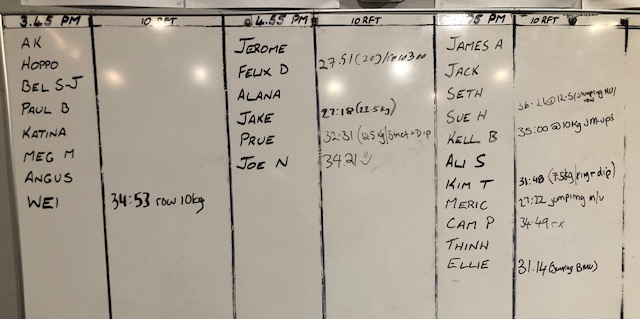 3.45 PM 10 RFT
AK
HOPPO
BEL S-J
PAUL B
KATINA
MEG M
ANGUS
WEI 34:53 row 10kg
4.55 PM 10RFT
JEROME
FELIX D 27.51 (20)
ALANA
JAKE 27:18 (22.5kg)
PRUE 32:31 (12.5kg/strict+Dip
JOE N 34.21
PM 10RFT
JAMES A
JACK
SETH
SUE H
KELL B 35:00 @ 10kg Jm-ups
ALI S
KIM T 31:48 (7.5kg/ring+dip)
MERIC 27:22 jumping m/u
CAM P 34.49 rx
THINH
ELLIE 31.14 (Jumping BMU)